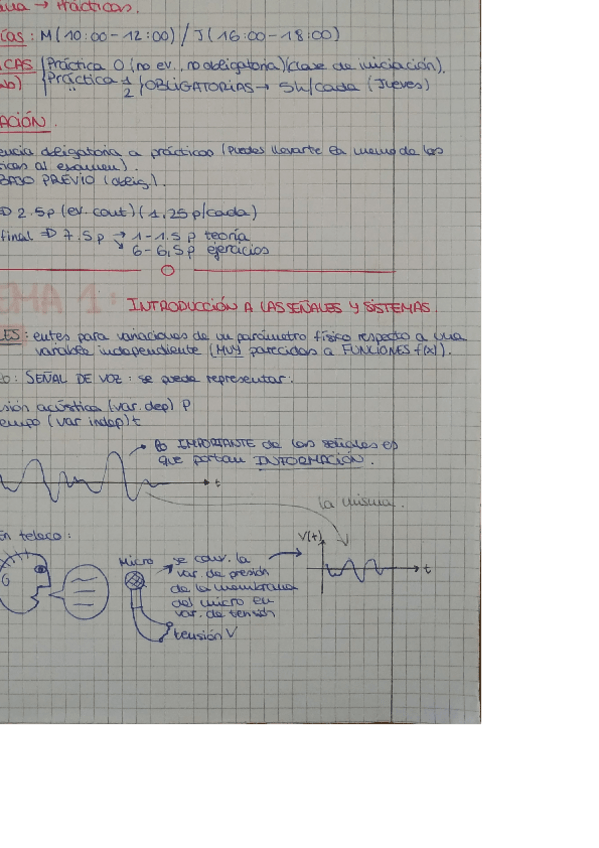 → Prácticas.
: M(10:00-12:00) / J(16:00-18:00)
CAS {Práctica 0 (no ev., no obligatoria)(clase de iniciación).
{Práctica 1 } OBLIGATORIAS → 5h/cada (Jueves)
" 2
ACIÓN.
encia obligatoria a prácticas (Puedes llevarte la memo de las
icas al examen).
BAJO PREVIO (oblig.).
⇒ 2.5p (ev. cont) (1,25p/cada)
final ⇒ 7.5p → 1-1.5p teoría
↘ 6-6,5p ejercicios
EMA 1:
INTRODUCCIÓN A LAS SEÑALES Y SISTEMAS.
LES: entes para variaciones de un parámetro físico respecto a una
variable independiente (MUY parecidas a FUNCIONES f(x)).
: SEÑAL DE VOZ: se puede representar:
sión acústica (var. dep) P
empo (var indep) t
→ lo IMPORTANTE de las señales es
que portan INFORMACIÓN.
t
la misma.
en teleco:
V(t)
Micro
se conv. la
var. de presión
de la membrana
del micro en
var. de tensión
t
tensión V